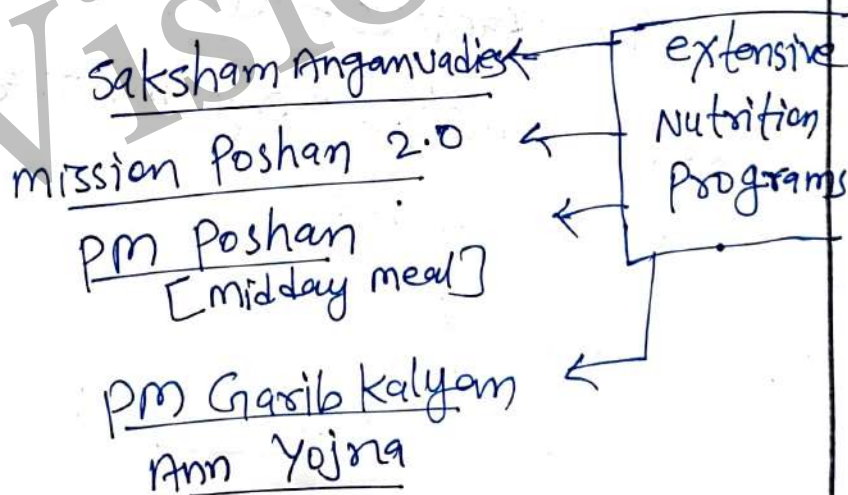 Saksham Anganvadies
Mission Poshan 2.0
PM Poshan
[Midday meal]
PM Garib Kalyan
Ann Yojna
extensive
Nutrition
Programs